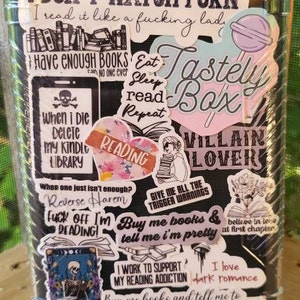 I read it like a fucking lady
I HAVE ENOUGH BOOKS
said NO ONE EVER
Eat
Sleep
read
Repeat
Tastely
Box
WHEN I DIE
DELETE
MY KINDLE
LIBRARY
READING
VILLAIN
LOVER
When one just isn't enough?
Reverse Harem
GIVE ME ALL THE
TRIGGER WARNINGS
FUCK OFF I'M
READING!
Buy me books &
tell me i'm pretty
believe in love
at first chapter
I WORK TO SUPPORT
MY READING ADDICTION
I love
dark romance
Buy me books and tell me to